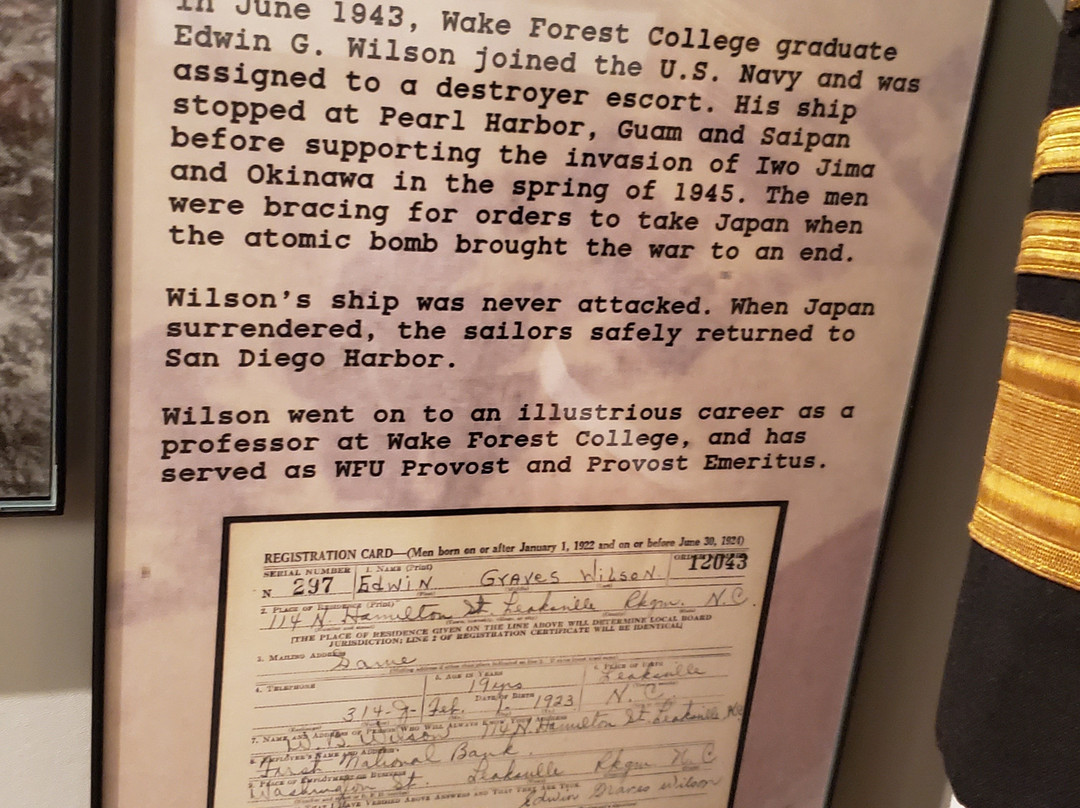 In June 1943, Wake Forest College graduate
Edwin G. Wilson joined the U.S. Navy and was
assigned to a destroyer escort. His ship
stopped at Pearl Harbor, Guam and Saipan
before supporting the invasion of Iwo Jima
and Okinawa in the spring of 1945. The men
were bracing for orders to take Japan when
the atomic bomb brought the war to an end.
Wilson's ship was never attacked. When Japan
surrendered, the sailors safely returned to
San Diego Harbor.
Wilson went on to an illustrious career as a
professor at Wake Forest College, and has
served as WFU Provost and Provost Emeritus.
REGISTRATION CARD—(Men born on or after January 1, 1922 and on or before June 30, 1924)
SERIAL NUMBER 1. NAME (Print) ORDER
N 297 Edwin Graves Wilson 12043
2. PLACE OF RESIDENCE (Print)
114 N. Hamilton St. Leaksville Rkgm. N.C.
[THE PLACE OF RESIDENCE GIVEN ON THE LINE ABOVE WILL DETERMINE LOCAL BOARD
JURISDICTION; LINE 2 OF REGISTRATION CERTIFICATE WILL BE IDENTICAL]
3. MAILING ADDRESS
Same
4. TELEPHONE 5. AGE IN YEARS 6. PLACE OF BIRTH
19 yrs Leaksville
DATE OF BIRTH
314-J- Feb. 1. 1923 N.C.
7. NAME AND ADDRESS OF PERSON WHO WILL ALWAYS KNOW YOUR ADDRESS
W. B. Wilson 114 N. Hamilton St. Leaksville NC
8. EMPLOYER'S NAME AND ADDRESS
First National Bank.
9. PLACE OF EMPLOYMENT OR BUSINESS
Washington St. Leaksville Rkgm N.C
I HAVE VERIFIED ABOVE ANSWERS AND THAT THEY ARE TRUE
Edwin Graves Wilson